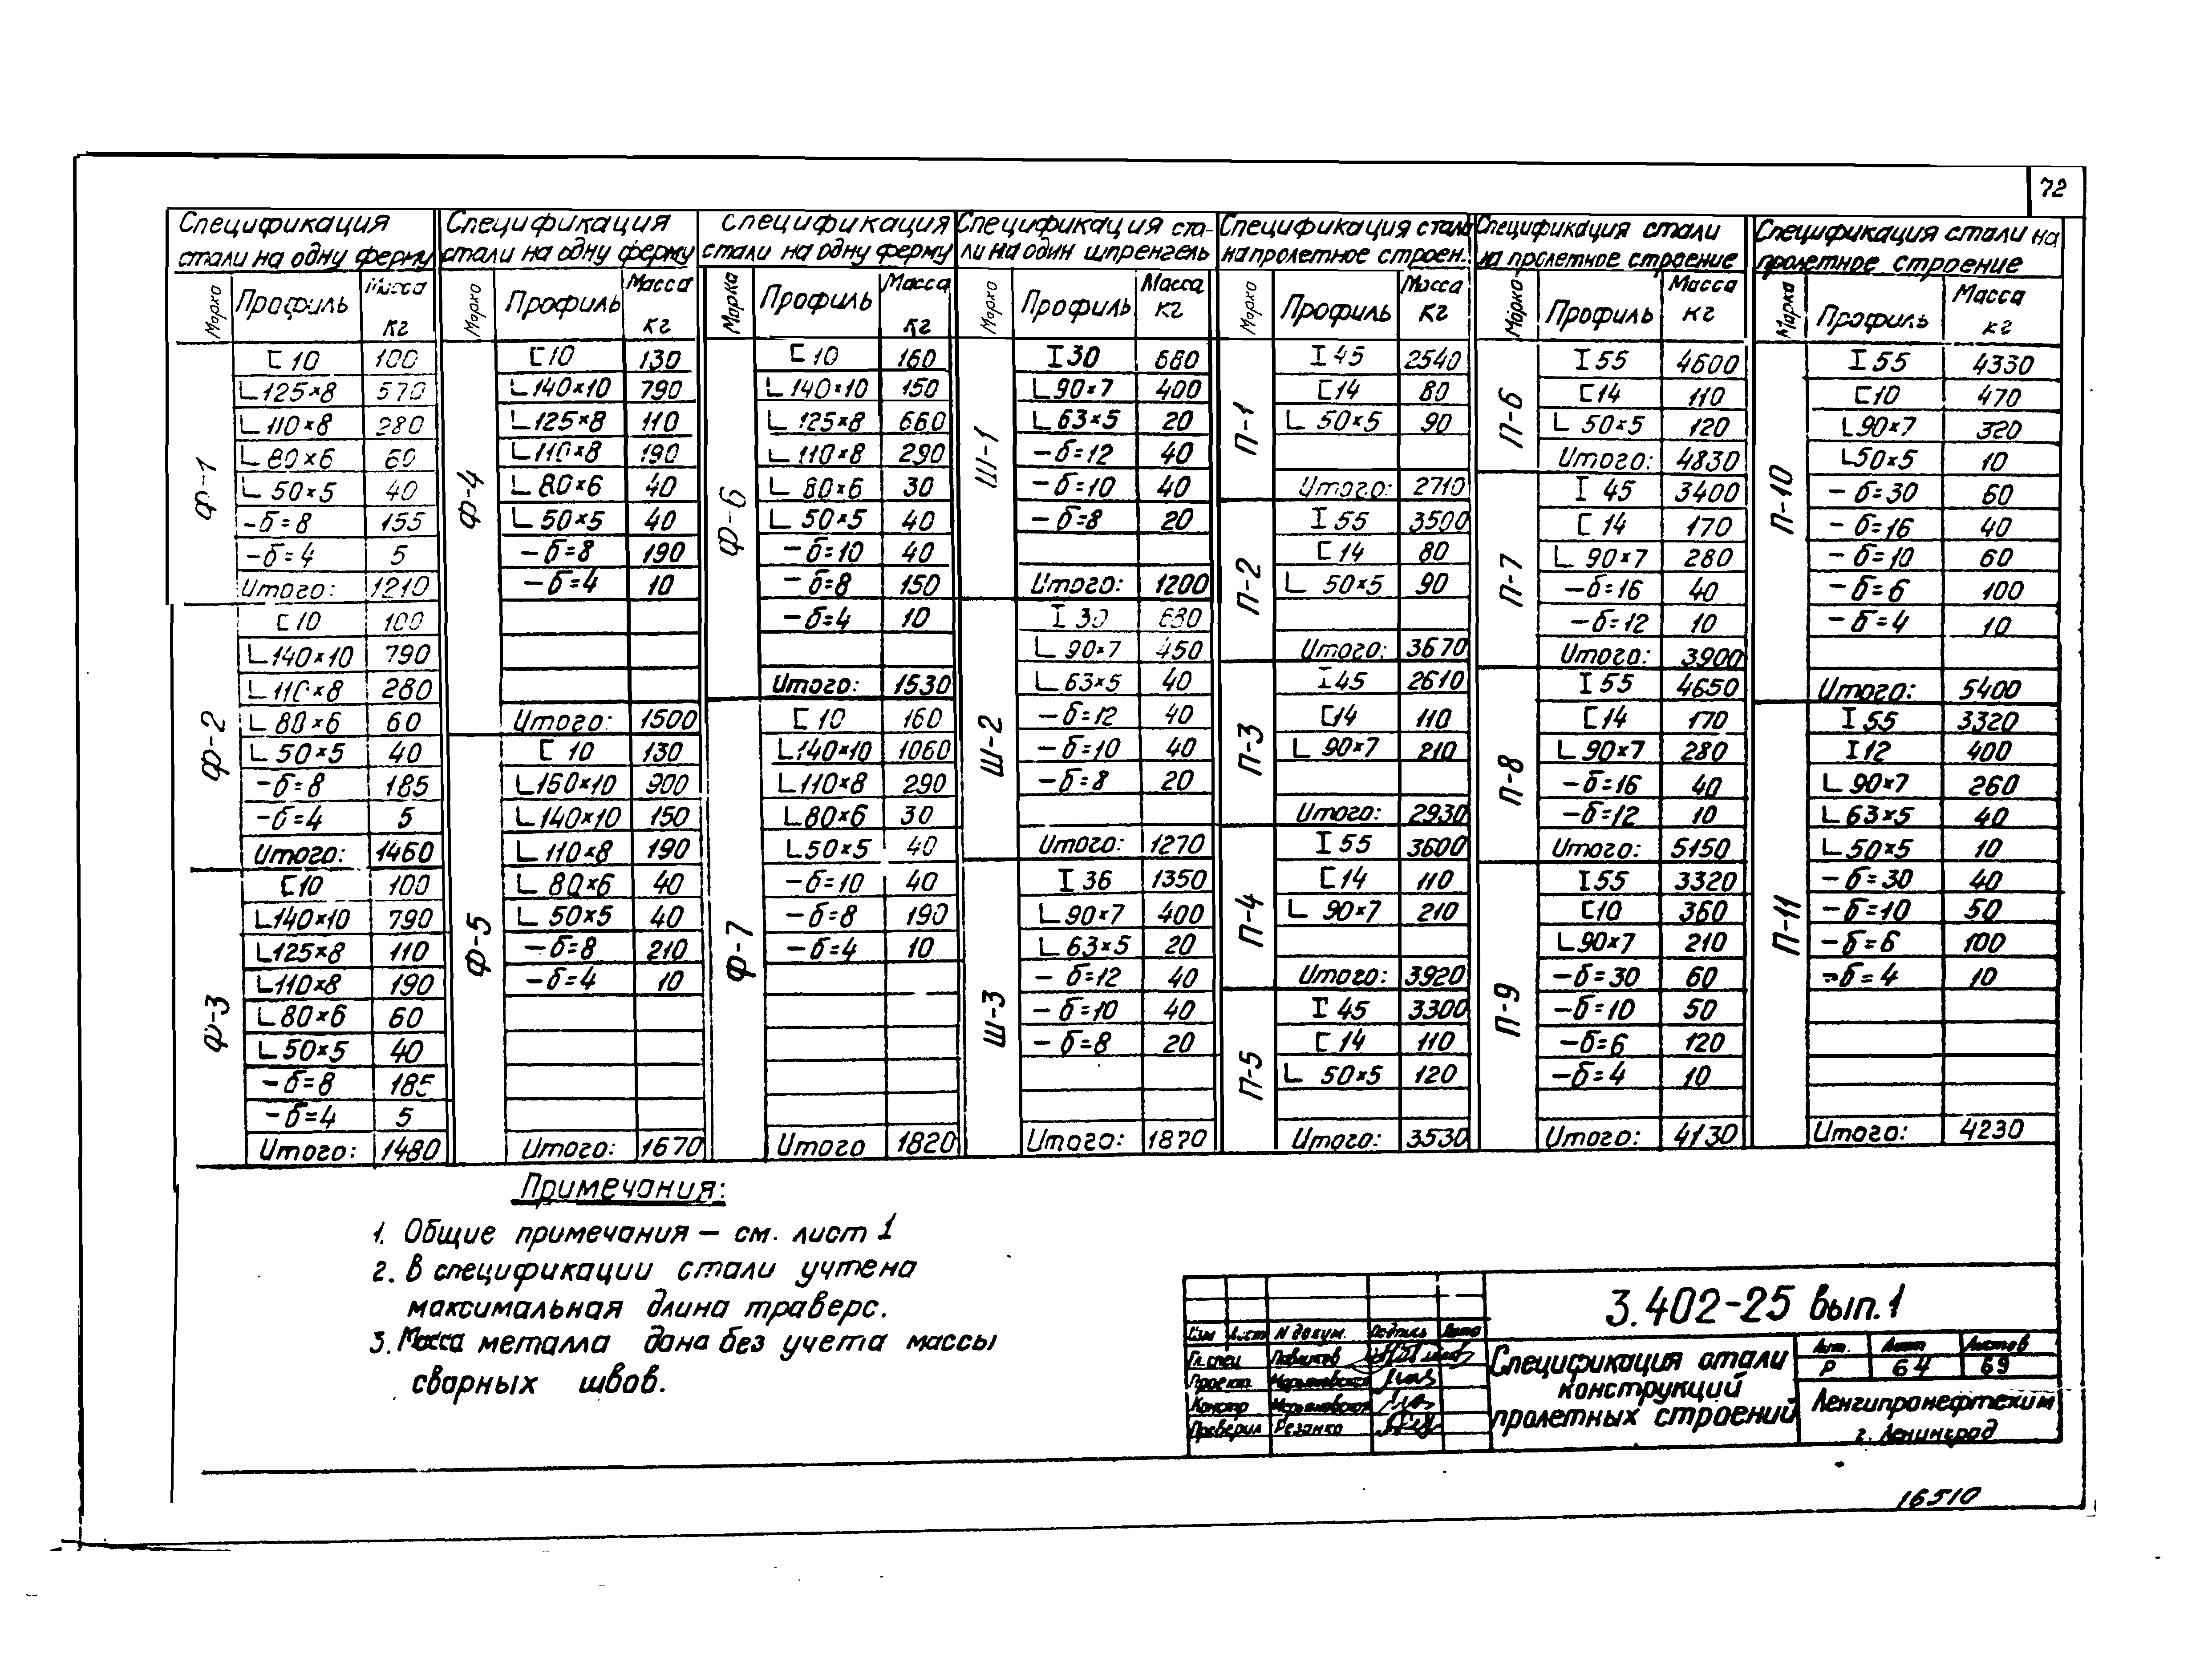 72
Спецификация стали на одну ферму
Марка Профиль Масса кг
Ф-1
[ 10 100
L 125×8 570
L 110×8 280
L 80×6 60
L 50×5 40
-δ=8 155
-δ=4 5
Итого: 1210
Ф-2
[ 10 100
L 140×10 790
L 110×8 280
L 80×6 60
L 50×5 40
-δ=8 185
-δ=4 5
Итого: 1460
Ф-3
[ 10 100
L 140×10 790
L 125×8 110
L 110×8 190
L 80×6 60
L 50×5 40
-δ=8 185
-δ=4 5
Итого: 1480
Спецификация стали на одну ферму
Марка Профиль Масса кг
Ф-4
[ 10 130
L 140×10 790
L 125×8 110
L 110×8 190
L 80×6 40
L 50×5 40
-δ=8 190
-δ=4 10
Итого: 1500
Ф-5
[ 10 130
L 160×10 900
L 140×10 150
L 110×8 190
L 80×6 40
L 50×5 40
-δ=8 210
-δ=4 10
Итого: 1670
Спецификация стали на одну ферму
Марка Профиль Масса кг
Ф-6
[ 10 160
L 140×10 150
L 125×8 660
L 110×8 290
L 80×6 30
L 50×5 40
-δ=10 40
-δ=8 150
-δ=4 10
Итого: 1530
Ф-7
[ 10 160
L 140×10 1060
L 110×8 290
L 80×6 30
L 50×5 40
-δ=10 40
-δ=8 190
-δ=4 10
Итого 1820
Спецификация ста-
ли на один шпренгель
Марка Профиль Масса кг
Ш-1
I 30 680
L 90×7 400
L 63×5 20
-δ=12 40
-δ=10 40
-δ=8 20
Итого: 1200
Ш-2
I 30 680
L 90×7 450
L 63×5 40
-δ=12 40
-δ=10 40
-δ=8 20
Итого: 1270
Ш-3
I 36 1350
L 90×7 400
L 63×5 20
-δ=12 40
-δ=10 40
-δ=8 20
Итого: 1870
Спецификация стали
на пролетное строен.
Марка Профиль Масса кг
П-1
I 45 2540
[ 14 80
L 50×5 90
Итого: 2710
П-2
I 55 3500
[ 14 80
L 50×5 90
Итого: 3670
П-3
I 45 2610
[ 14 110
L 90×7 210
Итого: 2930
П-4
I 55 3600
[ 14 110
L 90×7 210
Итого: 3920
П-5
I 45 3300
[ 14 110
L 50×5 120
Итого: 3530
Спецификация стали
на пролетное строение
Марка Профиль Масса кг
П-6
I 55 4600
[ 14 110
L 50×5 120
Итого: 4830
П-7
I 45 3400
[ 14 170
L 90×7 280
-δ=16 40
-δ=12 10
Итого: 3900
П-8
I 55 4650
[ 14 170
L 90×7 280
-δ=16 40
-δ=12 10
Итого: 5150
П-9
I 55 3320
[ 10 360
L 90×7 210
-δ=30 60
-δ=10 50
-δ=6 120
-δ=4 10
Итого: 4130
Спецификация стали на
пролетное строение
Марка Профиль Масса кг
П-10
I 55 4330
[ 10 470
L 90×7 320
L 50×5 10
-δ=30 60
-δ=16 40
-δ=10 60
-δ=6 100
-δ=4 10
Итого: 5400
П-11
I 55 3320
I 12 400
L 90×7 260
L 63×5 40
L 50×5 10
-δ=30 40
-δ=10 50
-δ=6 100
-δ=4 10
Итого: 4230
Примечания:
1. Общие примечания - см. лист 1
2. В спецификации стали учтена
максимальная длина траверс.
3. Масса металла дана без учета массы
сварных швов.
3.402-25 вып.1
Изм Лист N докум. Подпись Дата
Гл.спец Павликов
Проект. Марьяновская
Констр Марьяновская
Проверил Резанко
Спецификация стали
конструкций
пролетных строений
Лит. Лист Листов
Р 64 69
Ленгипронефтехим
г. Ленинград
16510